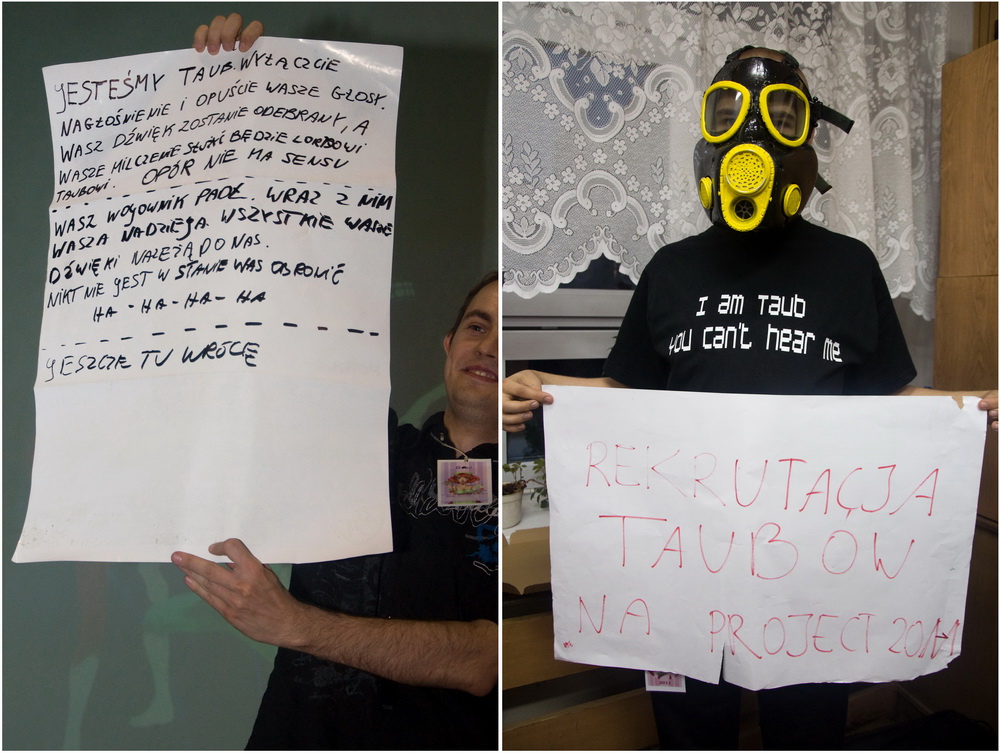 JESTEŚMY TAUB. WYŁĄCZCIE
NAGŁOŚNIENIE I OPUŚCIE WASZE GŁOSY.
WASZ DŹWIĘK ZOSTANIE ODEBRANY, A
WASZE MILCZENIE SŁUŻYĆ BĘDZIE LORDOWI
TAUBOWI. OPÓR NIE MA SENSU
WASZ WOJOWNIK PADŁ. WRAZ Z NIM
WASZA NADZIEJA. WSZYSTKIE WASZE
DŹWIĘKI NALEŻĄ DO NAS.
NIKT NIE JEST W STANIE WAS OBRONIĆ
HA - HA - HA - HA
JESZCZE TU WRÓCĘ
I am Taub
you can't hear me
REKRUTACJA
TAUBÓW
NA PROJECT 2011